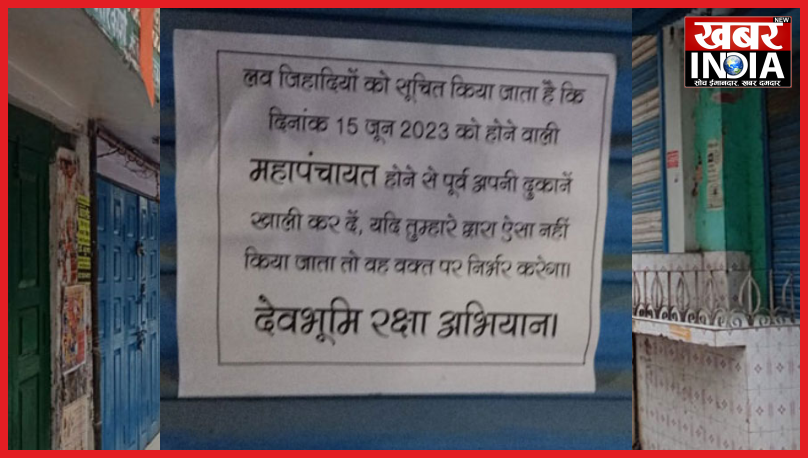 लव जिहादियों को सूचित किया जाता है कि
दिनांक 15 जून 2023 को होने वाली
महापंचायत होने से पूर्व अपनी दुकानें
खाली कर दें, यदि तुम्हारे द्वारा ऐसा नहीं
किया जाता तो वह वक्त पर निर्भर करेगा।
देवभूमि रक्षा अभियान।
खबर NEW
INDIA
सोच ईमानदार, खबर दमदार